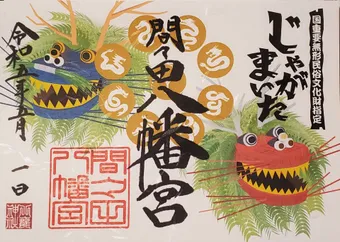 国重要無形民俗文化財指定
じゃがまいた
間々田八幡宮
令和五年五月一日
間々田
八幡宮